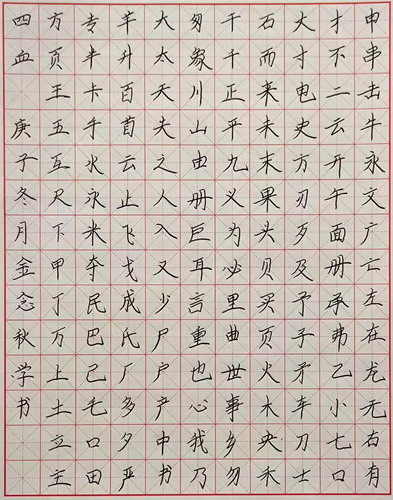 申串击牛永文广亡左在龙无右有
才不二云开午面册承弗乙小七口
寸电史方刃歹及予子矛车刀士
石而来未末果头贝买页火木央禾
干千正平九义为必里曲世事乡勿
匆象川山由册巨耳言重也心我乃
大太天夫之人入又少尸户产中书
升百云止飞戈成氏厂多夕严
专半卡手水永米夺民巴己毛口田
方页王五互尺下甲丁万上土立主
四血 庚子冬月金念秋学书